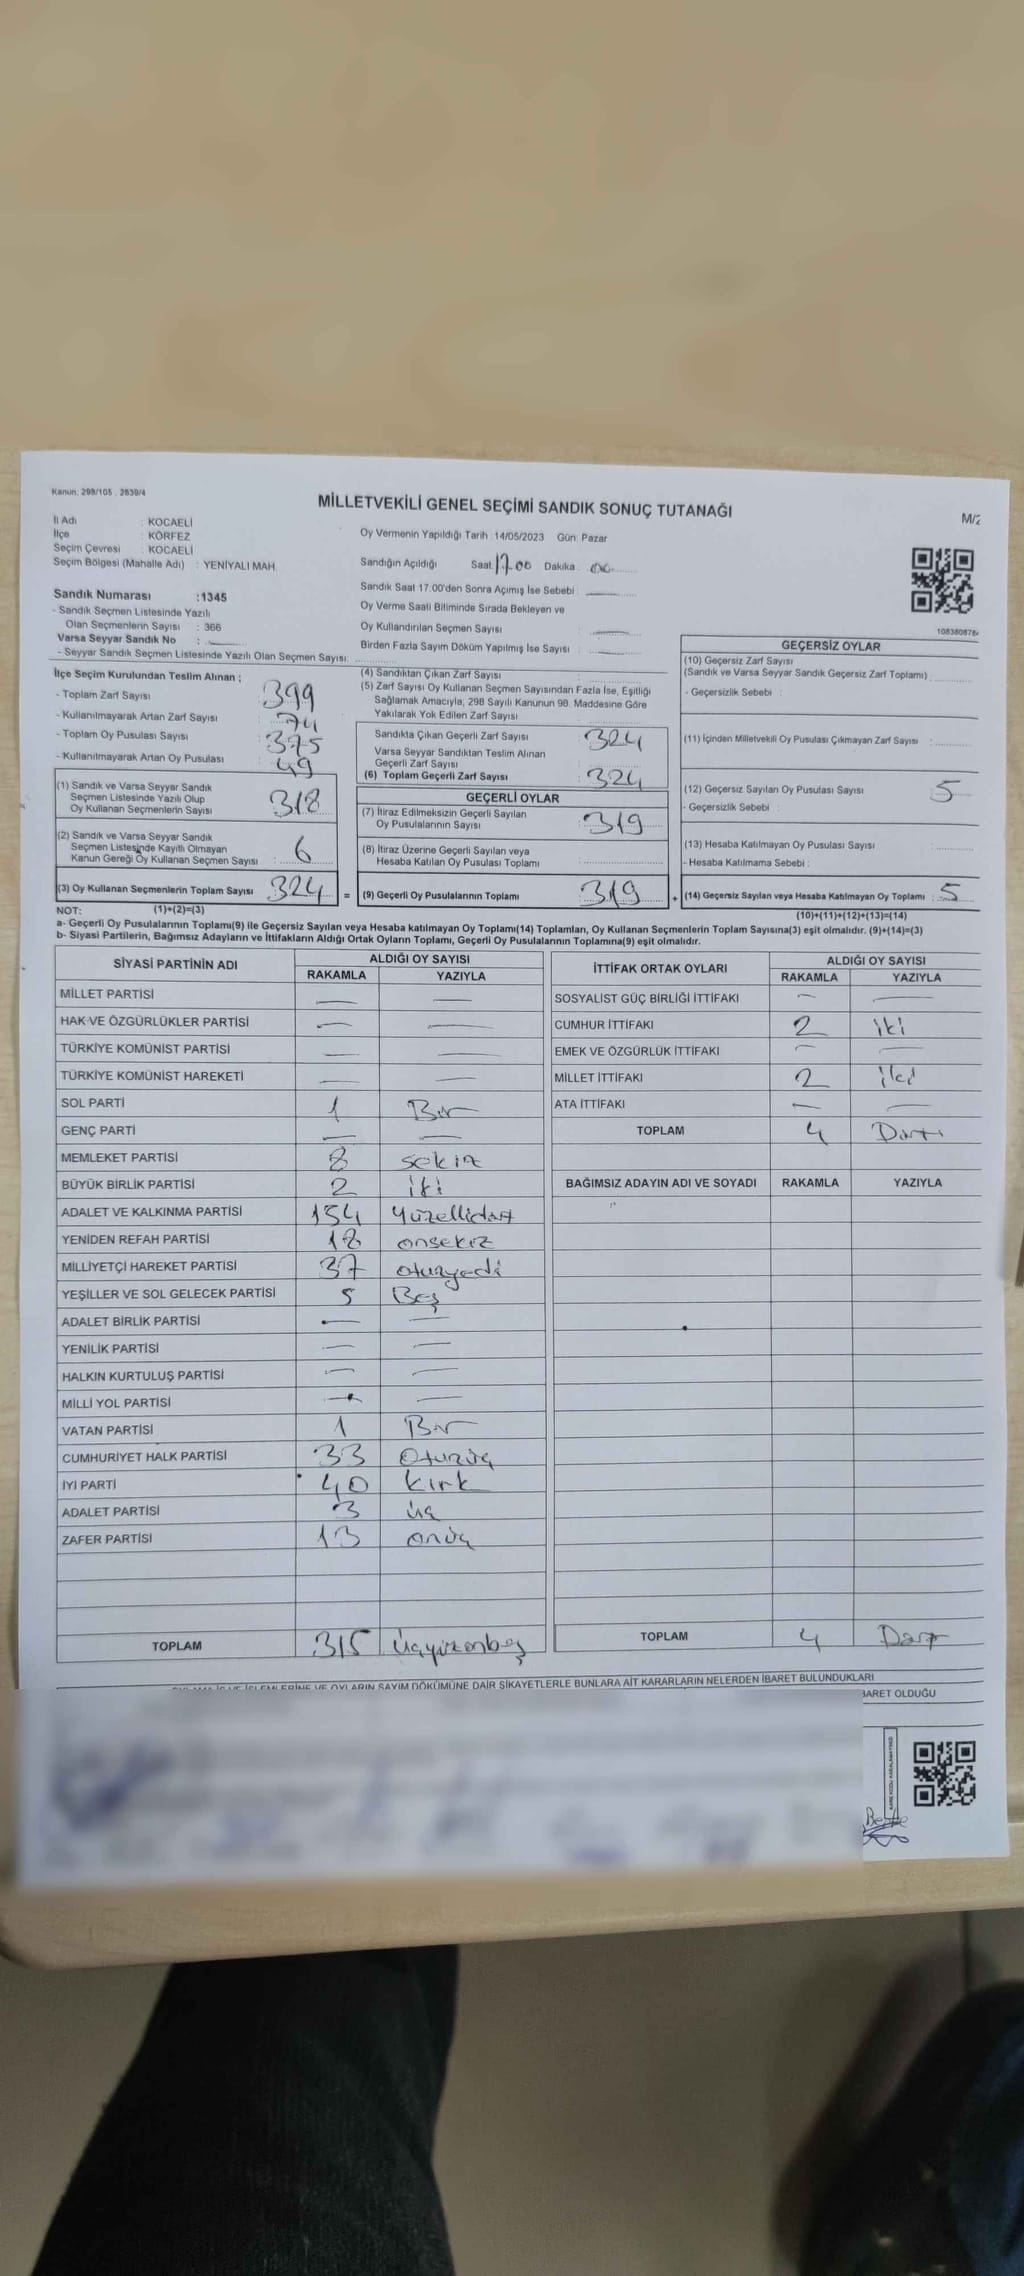 Kanun: 298/105 , 2839/4
MİLLETVEKİLİ GENEL SEÇİMİ SANDIK SONUÇ TUTANAĞI
M/2
İl Adı : KOCAELİ
İlçe : KÖRFEZ
Seçim Çevresi : KOCAELİ
Seçim Bölgesi (Mahalle Adı) : YENİYALI MAH.
Sandık Numarası :1345
- Sandık Seçmen Listesinde Yazılı
Olan Seçmenlerin Sayısı : 366
Varsa Seyyar Sandık No :
- Seyyar Sandık Seçmen Listesinde Yazılı Olan Seçmen Sayısı:
Oy Vermenin Yapıldığı Tarih :14/05/2023 Gün: Pazar
Sandığın Açıldığı Saat 17.00 Dakika : 00
Sandık Saat 17:00'den Sonra Açımış İse Sebebi :
Oy Verme Saati Bitiminde Sırada Bekleyen ve
Oy Kullandırılan Seçmen Sayısı :
Birden Fazla Sayım Döküm Yapılmış İse Sayısı :
İlçe Seçim Kurulundan Teslim Alınan ;
- Toplam Zarf Sayısı : 399
- Kullanılmayarak Artan Zarf Sayısı : 74
- Toplam Oy Pusulası Sayısı : 375
- Kullanılmayarak Artan Oy Pusulası : 49
(1) Sandık ve Varsa Seyyar Sandık
Seçmen Listesinde Yazılı Olup
Oy Kullanan Seçmenlerin Sayısı : 318
(2) Sandık ve Varsa Seyyar Sandık
Seçmen Listesinde Kayıtlı Olmayan
Kanun Gereği Oy Kullanan Seçmen Sayısı : 6
(3) Oy Kullanan Seçmenlerin Toplam Sayısı : 324 =
(4) Sandıktan Çıkan Zarf Sayısı :
(5) Zarf Sayısı Oy Kullanan Seçmen Sayısından Fazla İse, Eşitliği
Sağlamak Amacıyla, 298 Sayılı Kanunun 98. Maddesine Göre
Yakılarak Yok Edilen Zarf Sayısı :
Sandıkta Çıkan Geçerli Zarf Sayısı : 324
Varsa Seyyar Sandıktan Teslim Alınan
Geçerli Zarf Sayısı :
(6) Toplam Geçerli Zarf Sayısı : 324
GEÇERLİ OYLAR
(7) İtiraz Edilmeksizin Geçerli Sayılan
Oy Pusulalarının Sayısı : 319
(8) İtiraz Üzerine Geçerli Sayılan veya
Hesaba Katılan Oy Pusulası Toplamı :
(9) Geçerli Oy Pusulalarının Toplamı : 319 +
GEÇERSİZ OYLAR
(10) Geçersiz Zarf Sayısı
(Sandık ve Varsa Seyyar Sandık Geçersiz Zarf Toplamı) :
- Geçersizlik Sebebi :
(11) İçinden Milletvekili Oy Pusulası Çıkmayan Zarf Sayısı :
(12) Geçersiz Sayılan Oy Pusulası Sayısı : 5
- Geçersizlik Sebebi :
(13) Hesaba Katılmayan Oy Pusulası Sayısı :
- Hesaba Katılmama Sebebi :
(14) Geçersiz Sayılan veya Hesaba Katılmayan Oy Toplamı : 5
NOT: (1)+(2)=(3) (10)+(11)+(12)+(13)=(14)
a- Geçerli Oy Pusulalarının Toplamı(9) ile Geçersiz Sayılan veya Hesaba katılmayan Oy Toplamı(14) Toplamları, Oy Kullanan Seçmenlerin Toplam Sayısına(3) eşit olmalıdır. (9)+(14)=(3)
b- Siyasi Partilerin, Bağımsız Adayların ve İttifakların Aldığı Ortak Oyların Toplamı, Geçerli Oy Pusulalarının Toplamına(9) eşit olmalıdır.
SİYASİ PARTİNİN ADI ALDIĞI OY SAYISI
RAKAMLA YAZIYLA
MİLLET PARTİSİ — —
HAK VE ÖZGÜRLÜKLER PARTİSİ — —
TÜRKİYE KOMÜNİST PARTİSİ — —
TÜRKİYE KOMÜNİST HAREKETİ — —
SOL PARTİ 1 Bir
GENÇ PARTİ — —
MEMLEKET PARTİSİ 8 sekiz
BÜYÜK BİRLİK PARTİSİ 2 iki
ADALET VE KALKINMA PARTİSİ 154 Yüzellidört
YENİDEN REFAH PARTİSİ 18 onsekiz
MİLLİYETÇİ HAREKET PARTİSİ 37 oturyedi
YEŞİLLER VE SOL GELECEK PARTİSİ 5 Beş
ADALET BİRLİK PARTİSİ — —
YENİLİK PARTİSİ — —
HALKIN KURTULUŞ PARTİSİ — —
MİLLİ YOL PARTİSİ — —
VATAN PARTİSİ 1 Bir
CUMHURİYET HALK PARTİSİ 33 Oturüç
İYİ PARTİ 40 Kırk
ADALET PARTİSİ 3 üç
ZAFER PARTİSİ 13 onüç
TOPLAM 315 üçyüzonbeş
İTTİFAK ORTAK OYLARI ALDIĞI OY SAYISI
RAKAMLA YAZIYLA
SOSYALİST GÜÇ BİRLİĞİ İTTİFAKI — —
CUMHUR İTTİFAKI 2 iki
EMEK VE ÖZGÜRLÜK İTTİFAKI — —
MİLLET İTTİFAKI 2 iki
ATA İTTİFAKI — —
TOPLAM 4 Dört
BAĞIMSIZ ADAYIN ADI VE SOYADI RAKAMLA YAZIYLA
TOPLAM 4 Dört
OYLARIN SAYIM DÖKÜMÜNE DAİR ŞİKAYETLERLE BUNLARA AİT KARARLARIN NELERDEN İBARET BULUNDUKLARI
İBARET OLDUĞU